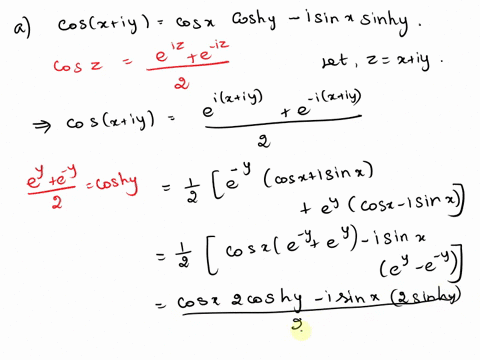 a) cos(x+iy) = cosx coshy - i sinx sinhy.
cos z = e^{iz} + e^{-iz} / 2 let, z = x+iy.
⇒ cos(x+iy) = e^{i(x+iy)} + e^{-i(x+iy)} / 2
e^y + e^{-y} / 2 = coshy = 1/2 [ e^{-y} (cosx + i sinx)
+ e^y (cosx - i sinx) ]
= 1/2 [ cosx (e^{-y} + e^y) - i sinx
(e^y - e^{-y}) ]
= cosx 2coshy - i sinx (2 sinhy) / 2